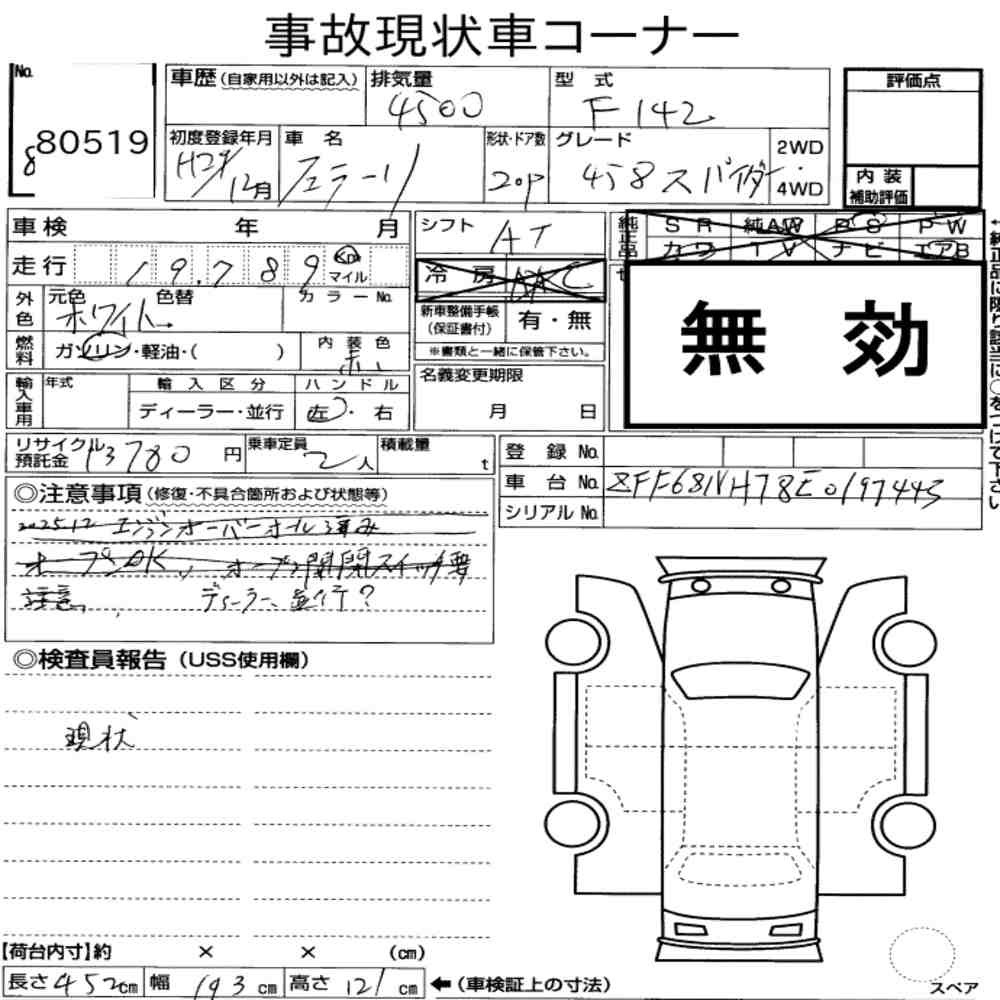 事故現状車コーナー
No.
80519
車歴(自家用以外は記入)
排気量
4500
型式
F142
評価点
初度登録年月
12月
車名
フェラーリ
形状・ドア数
20P
グレード
458スパイダー
2WD
・
4WD
内装
補助評価
車検 年 月
シフト
AT
純正品
SR 純AW PS PW
カワ TV ナビ エアB
走行
19789
Km
マイル
冷房 AAC
外色
元色 色替
ホワイト→
カラーNo.
新車整備手帳
(保証書付)
有・無
※書類と一緒に保管下さい。
無効
燃料
ガソリン・軽油・( )
内装色
赤
輸入車用
年式
輸入区分
ディーラー・並行
ハンドル
左・右
名義変更期限
月 日
リサイクル
預託金
13780円
乗車定員
2人
積載量
t
登録No.
車台No.
ZFF68NHT8E0197445
シリアルNo.
◎注意事項(修復・不具合箇所および状態等)
2025.12 エンジンオーバーオール済み
オープンOK、オープン開閉スイッチ要
注意、 ディーラー、並行?
◎検査員報告(USS使用欄)
現状
【荷台内寸】約 × × (cm)
長さ452cm 幅193cm 高さ121cm
←(車検証上の寸法)
スペア